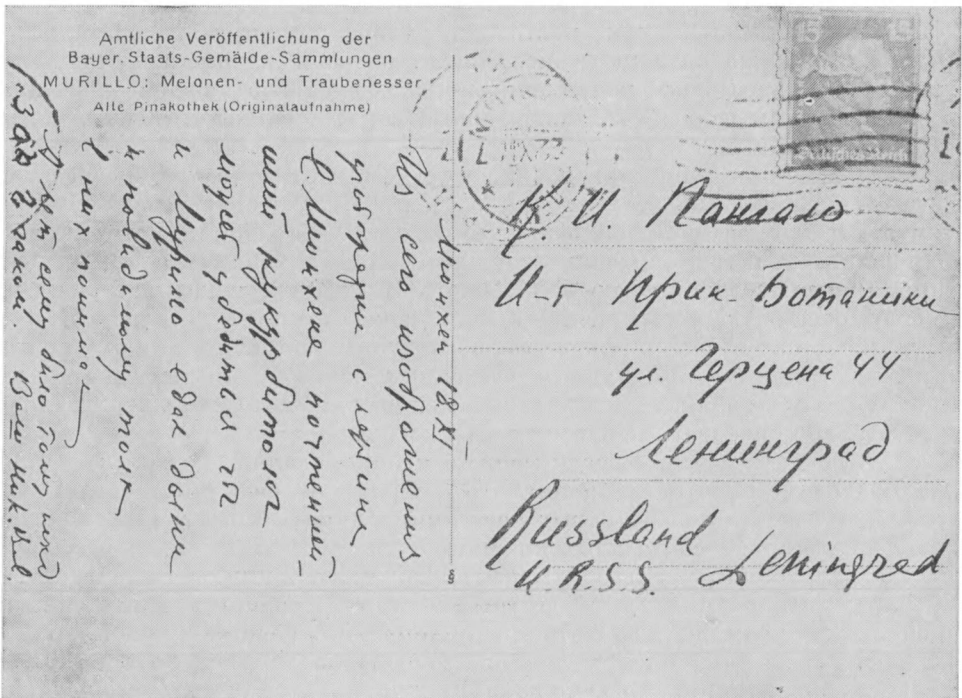 Amtliche Veröffentlichung der
Bayer. Staats-Gemälde-Sammlungen
MURILLO: Melonen- und Traubenesser
Alte Pinakothek (Originalaufnahme)
Мюнхен 18.XI
Из сего изображения
усмотрите с картины
в Мюнхене почтенней-
ший кукурбитолог
может убедиться что
и Мурильо едал дыни
и повидимому толк
в них понимал
лет сему было тому назад
Ваш Ник. Вав.
К. И. Пангало
И-т Прик. Ботаники
ул. Герцена 44
Ленинград
Russland
U.R.S.S. Leningrad